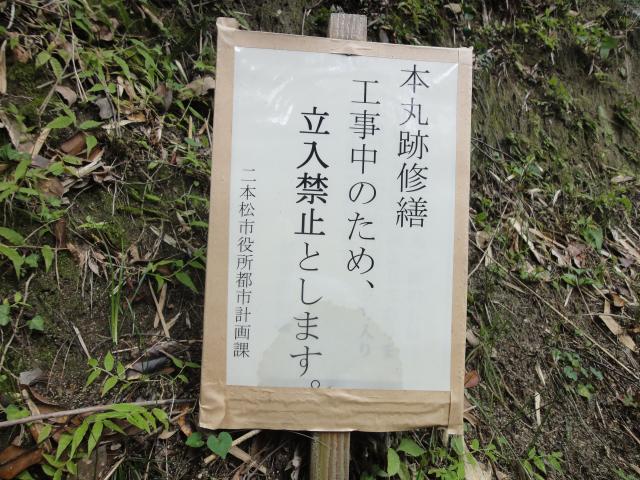 本丸跡修繕
工事中のため、
立入禁止とします。
二本松市役所都市計画課